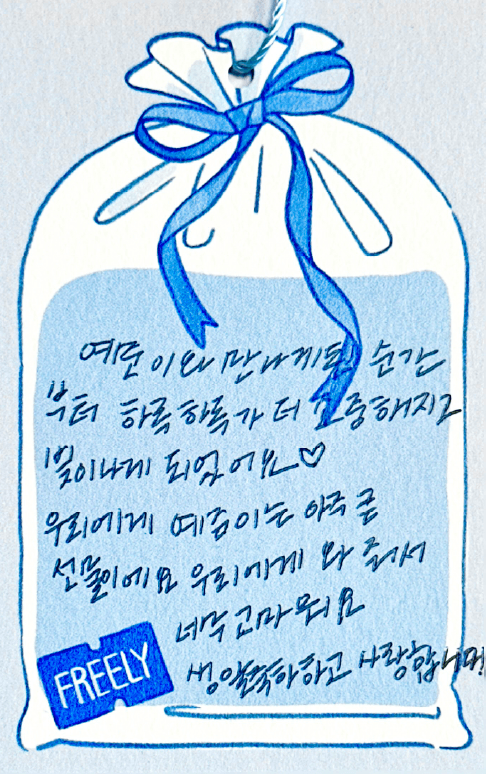 이와 만나게된 순간
부터 하루하루가 더 소중해지고
빛이나게 되었어요♡
우리에게 이는 아주 큰
선물이에요 우리에게 와 줘서
너무 고마워요
생일축하하고 사랑합니다!
FREELY